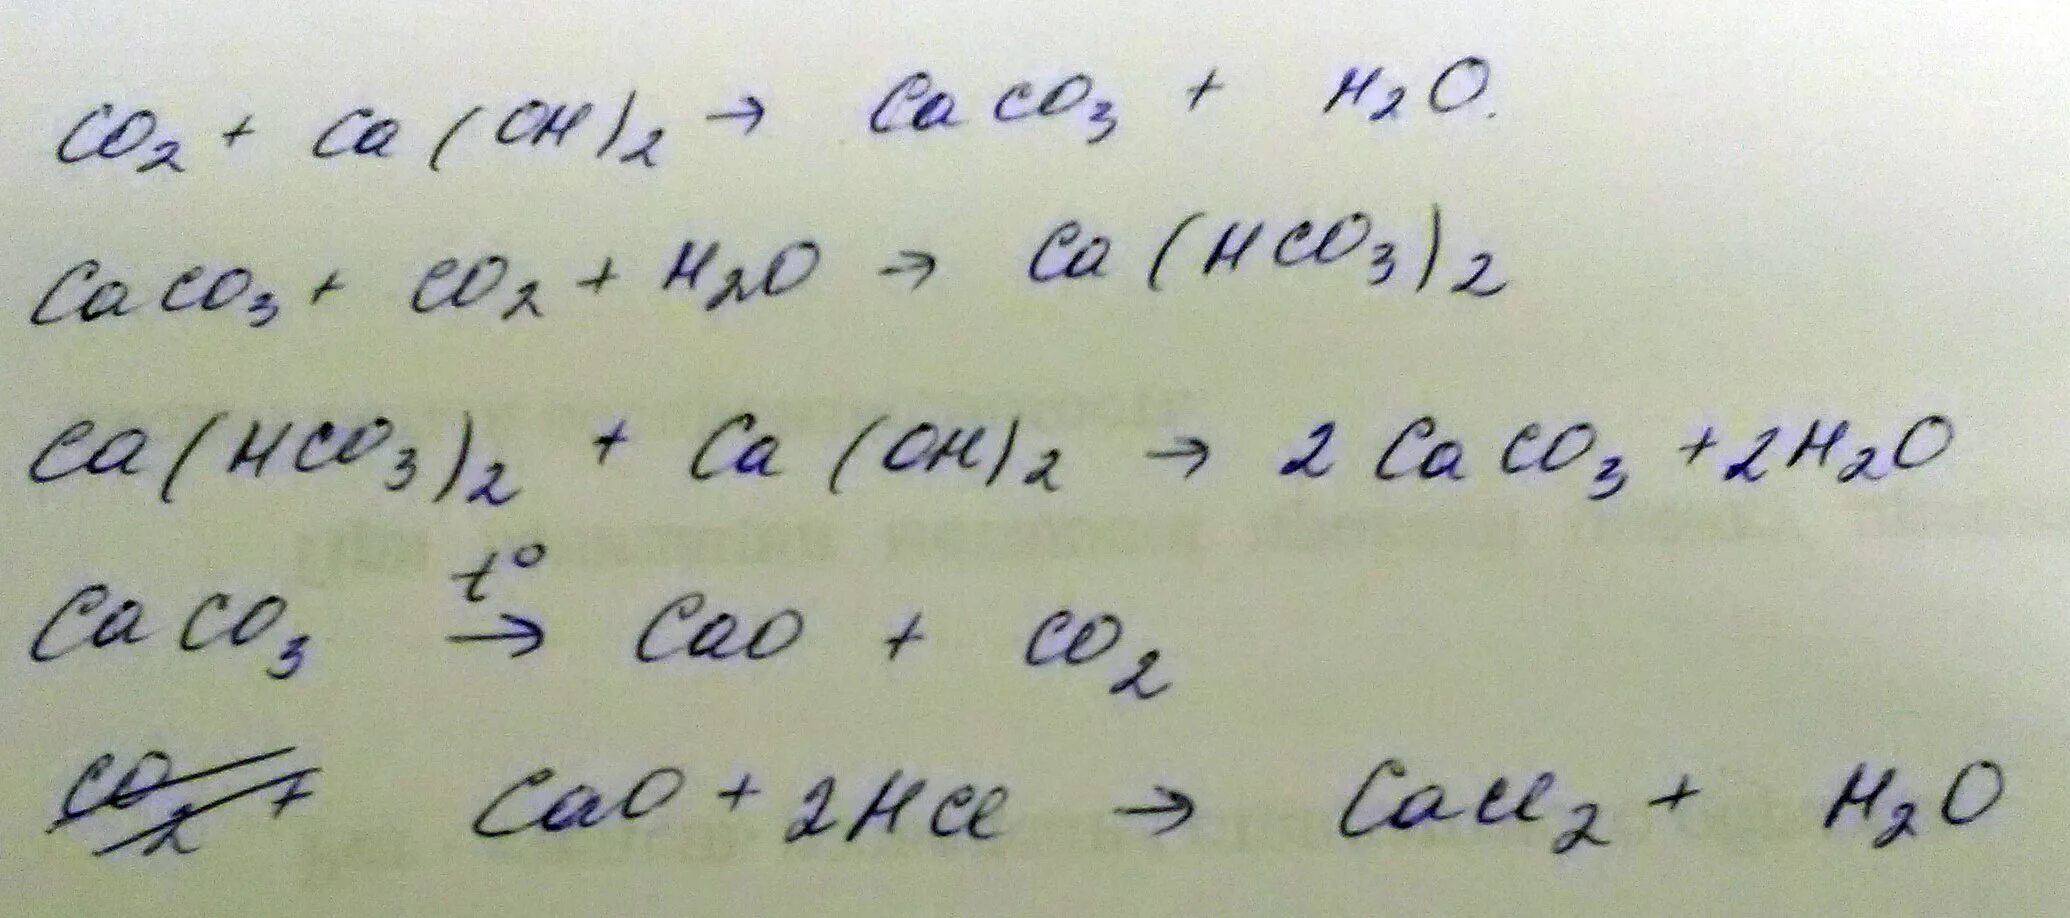 CO₂ + Ca(OH)₂ → CaCO₃ + H₂O.
CaCO₃ + CO₂ + H₂O → Ca(HCO₃)₂
Ca(HCO₃)₂ + Ca(OH)₂ → 2CaCO₃ + 2H₂O
CaCO₃ t° → CaO + CO₂
CO₂ + CaO + 2HCl → CaCl₂ + H₂O